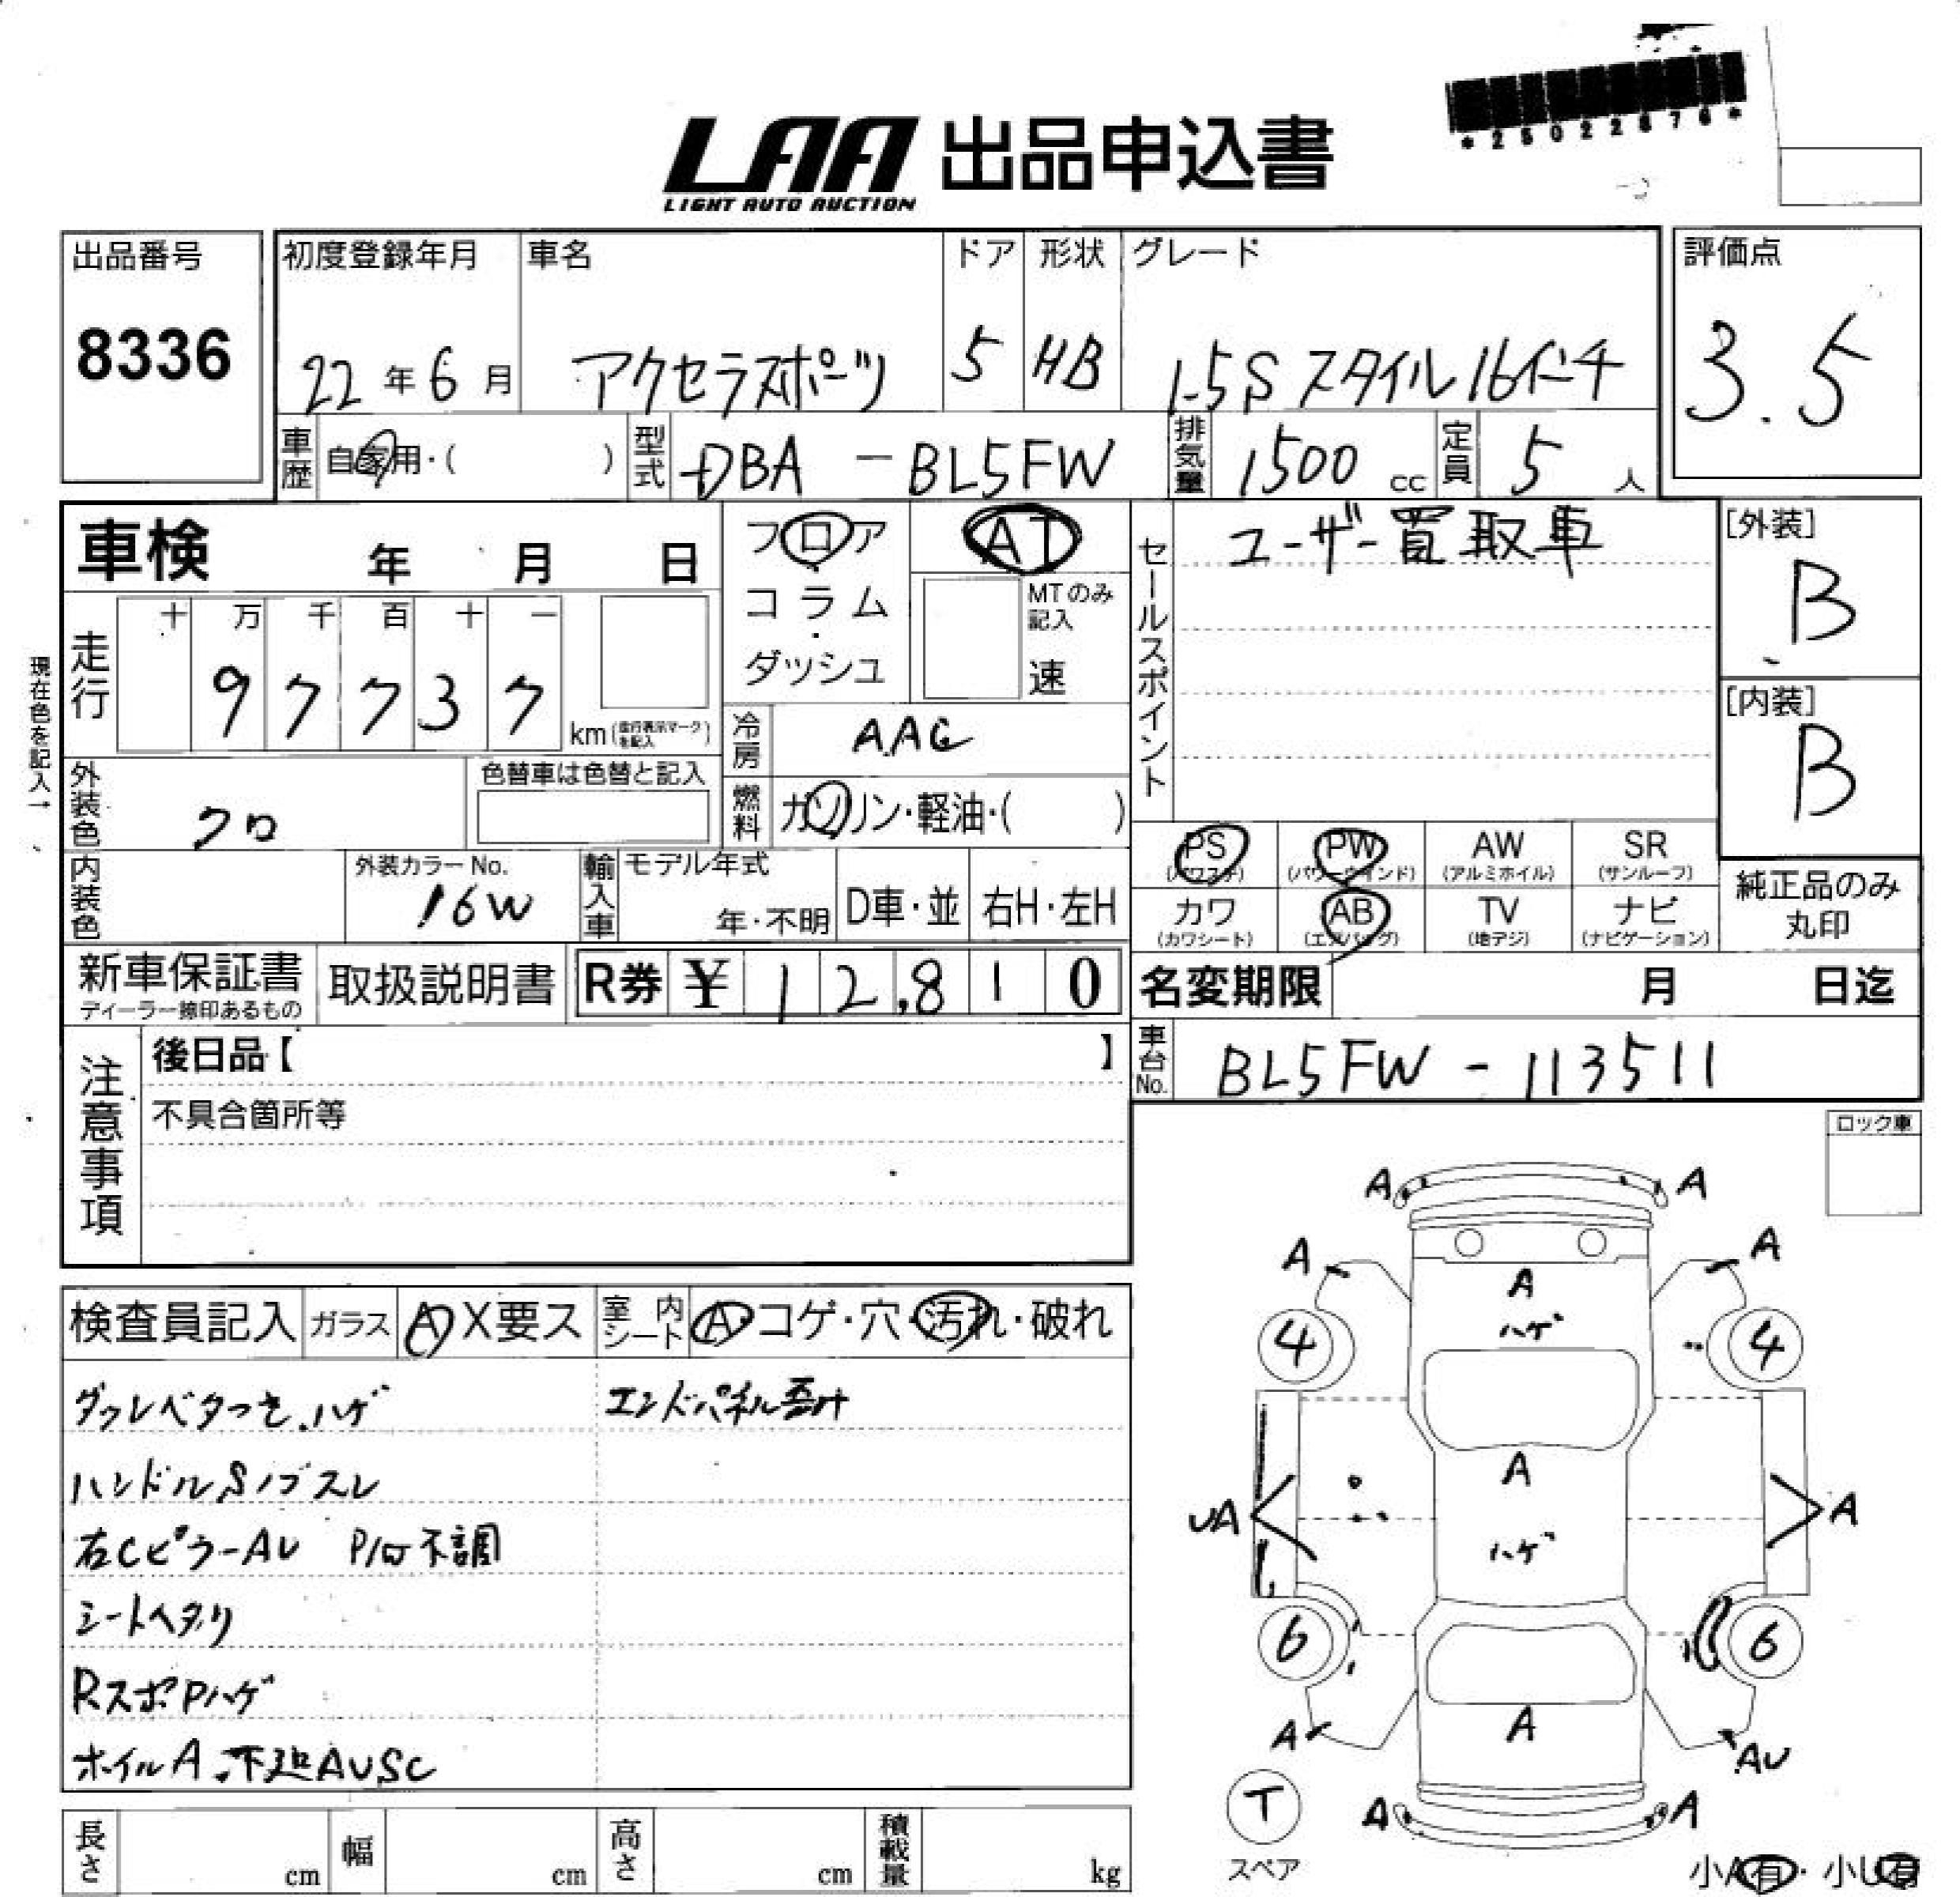 *25022876*
LAA 出品申込書
LIGHT AUTO AUCTION
出品番号 初度登録年月 車名 ドア 形状 グレード 評価点
8336 22年6月 アクセラスポーツ 5 HB 1.5S スタイル16インチ 3.5
車歴 自家用・( ) 型式 DBA - BL5FW 排気量 1500 cc 定員 5 人
車検 年 月 日 フロア AT セールスポイント ユーザー買取車 [外装]
コラム・ MTのみ記入 B
十 万 千 百 十 一
走行 9 7 7 3 7 km (走行表示マークを記入) ダッシュ 速 [内装]
現在色を記入→
冷房 AAC B
外装色 クロ 色替車は色替と記入 燃料 ガソリン・軽油・( )
PS (パワステ) PW (パワーウインド) AW (アルミホイル) SR (サンルーフ)
内装色 外装カラーNo. 16W 輸入車 モデル年式 年・不明 D車・並 右H・左H
カワ (カワシート) AB (エアバッグ) TV (地デジ) ナビ (ナビゲーション) 純正品のみ丸印
新車保証書 ディーラー捺印あるもの 取扱説明書 R券 ¥ 12,810 名変期限 月 日迄
注意事項 後日品【 】 車台No. BL5FW - 113511
不具合箇所等
ロック車
A A
A A
A
ハゲ
4 4
検査員記入 ガラス A X要ス 室内シート A・コゲ・穴・汚れ・破れ
ダッシュベタつき、ハゲ エンドパネル歪み
ハンドルSノブスレ
A
UA A
右CピラーAU P/W不調
ハゲ
シートヘタリ
6 6
RスポPハゲ
A A AU
ホイルA、下廻AUSC
T A A
スペア
長さ cm 幅 cm 高さ cm 積載量 kg
小A有・小U有